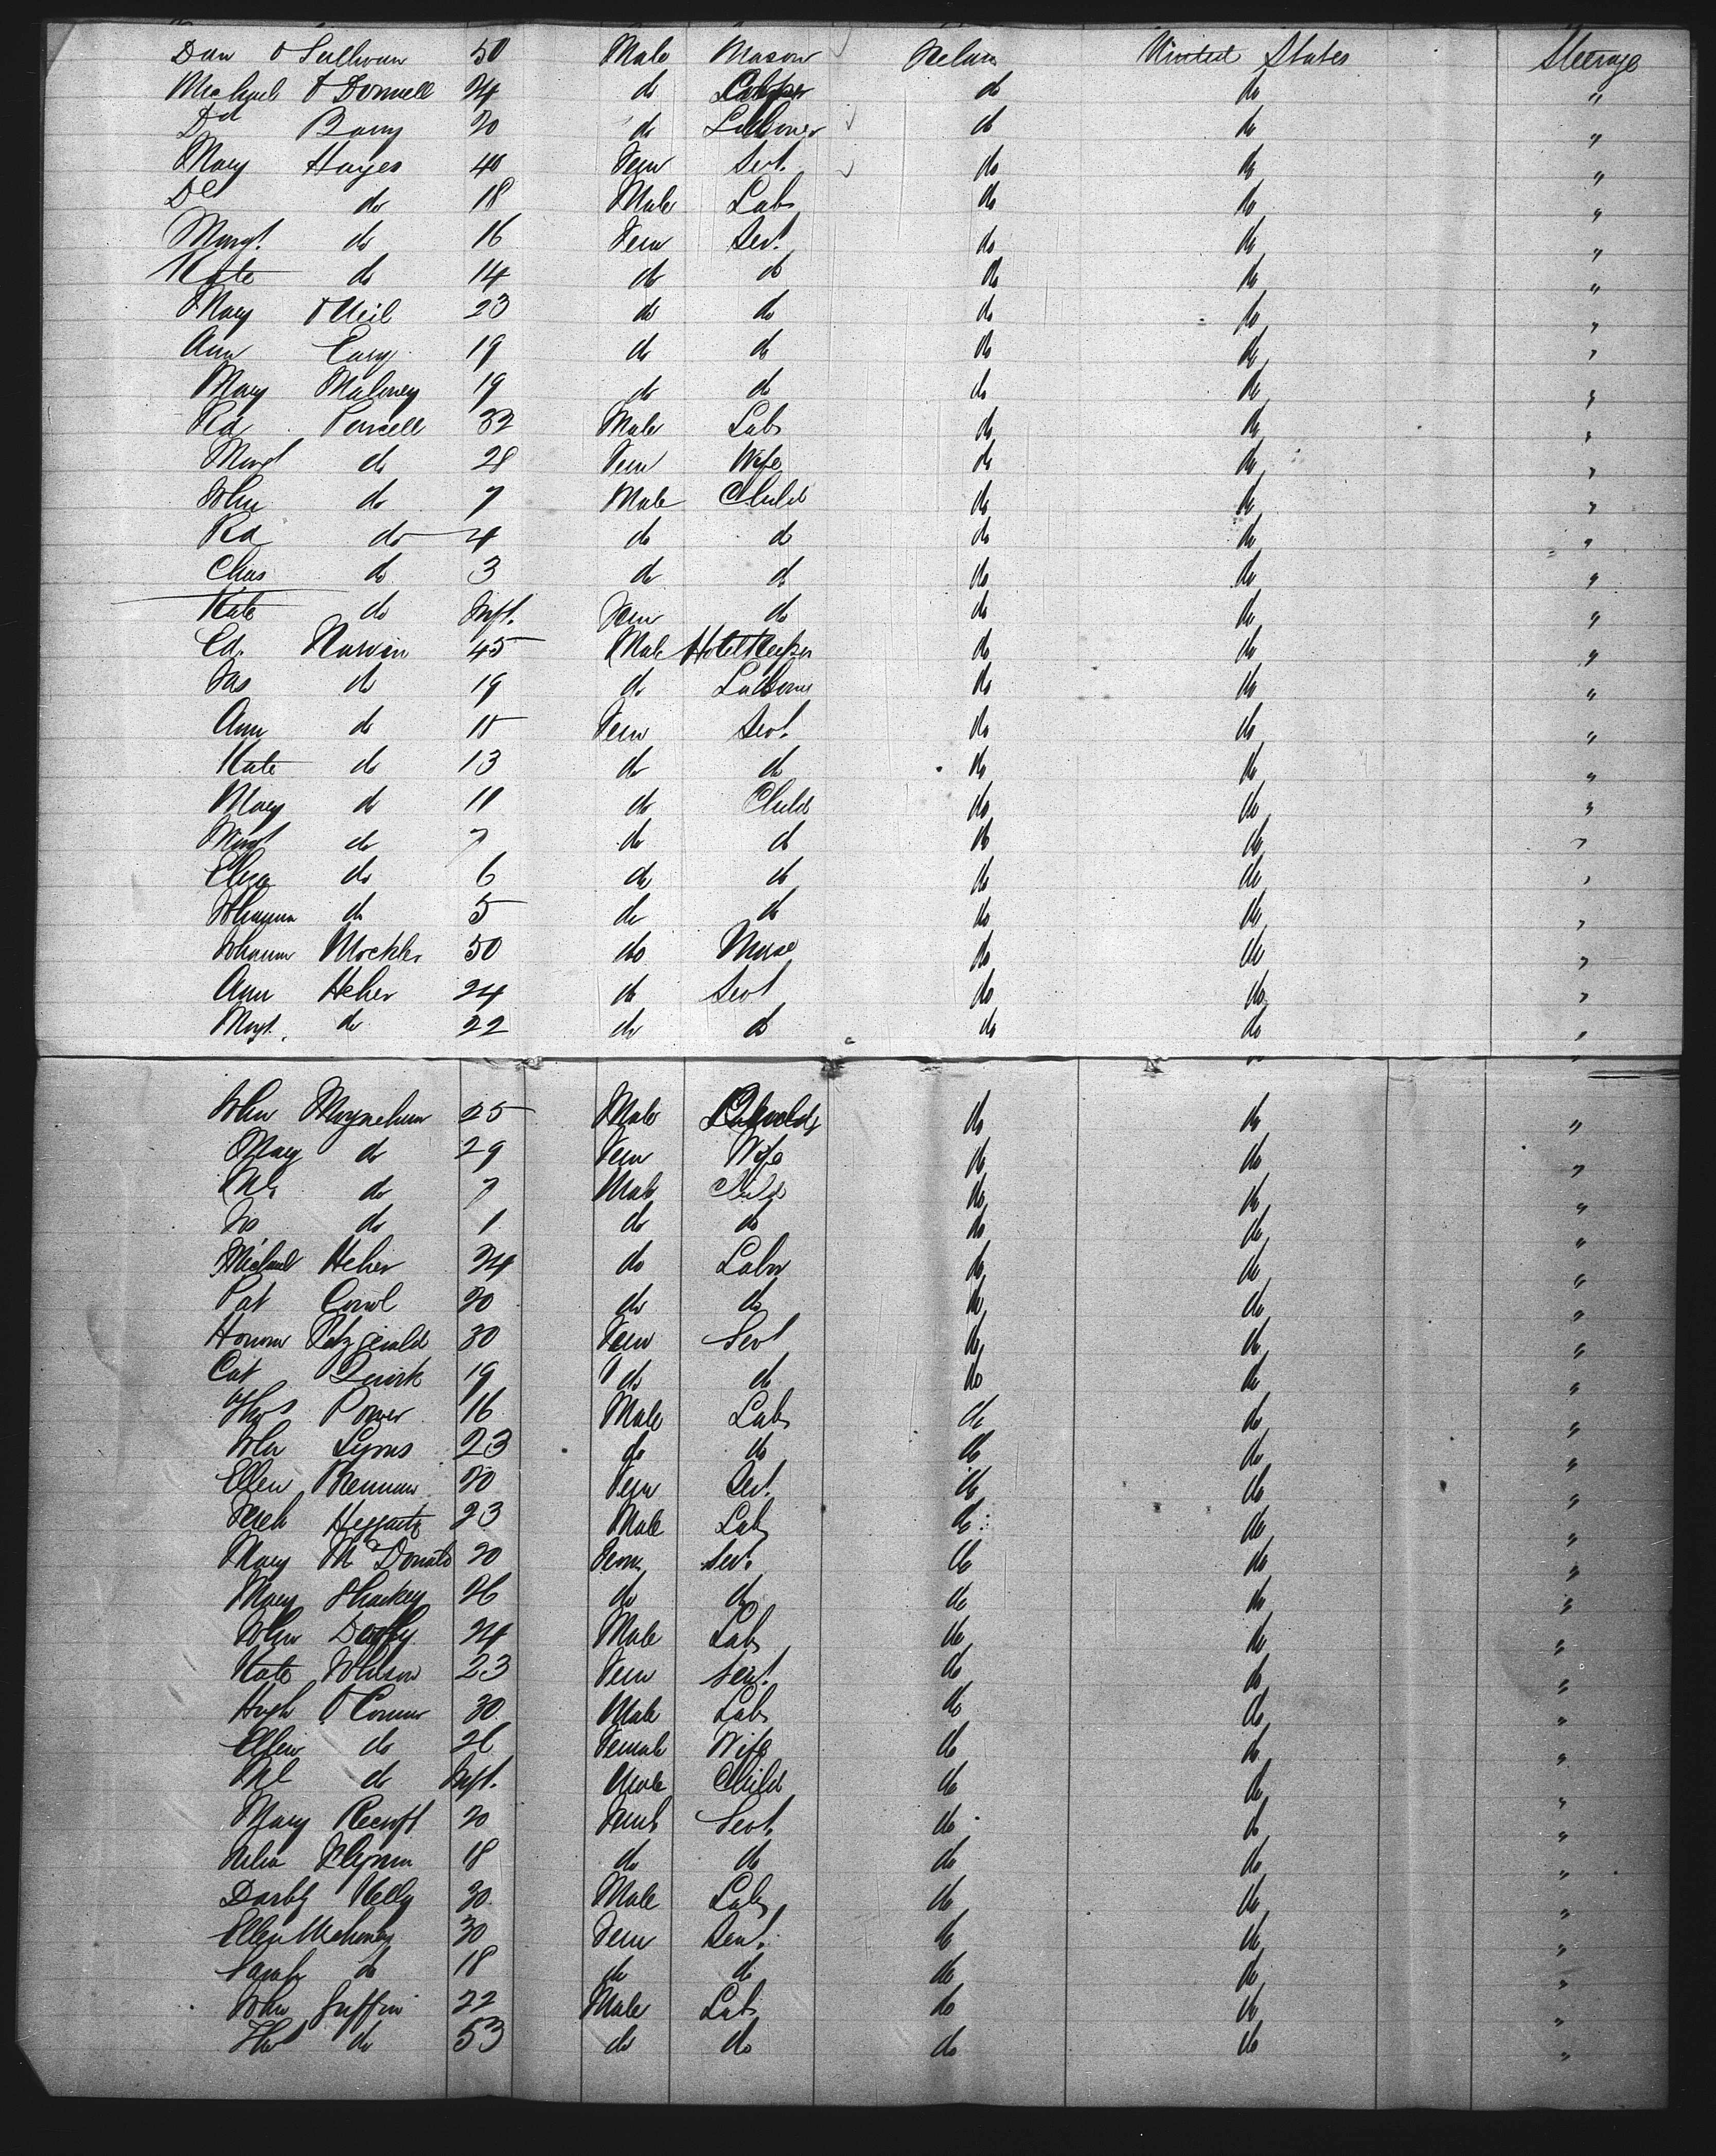 Dan O Sullivan 50 Male Mason Ireland United States Steerage
Michael O Donnell 24 do do do "
Dd Barry 20 do Labourer do do "
Mary Hayes 40 Fem Servt. do do "
do 18 Male Labr do do "
Margt. do 16 Fem Servt. do do "
Kate do 14 do do do do "
Mary O Neil 23 do do do do "
Ann Cary 19 do do do do "
Mary Maloney 19 do do do do "
Rd Purcell 32 Male Labr do do "
Margt do 28 Fem Wife do do "
John do 7 Male Child do do "
Rd do 4 do do do do "
Chas do 3 do do do do "
Kate do Inft. Fem do do do "
Ed. 45 Male Hotel Keeper do do "
Jas do 19 do Labourer do do "
Ann do 15 Fem Servt. do do "
Kate do 13 do do do do "
Mary do 11 do Child do do "
Margt do 7 do do do do "
Eliza do 6 do do do do "
Johanna do 5 do do do do "
Johanna Mockler 50 do Nurse do do "
Ann Heher 24 do Servt do do "
Margt. do 22 do do do do "
John Moynehan 25 Male do do "
Mary do 29 Fem Wife do do "
Ml. do 7 Male Child do do "
Jas do 1 do do do do "
Michael Heher 24 do Labr do do "
Pat 20 do do do do "
Honora Fitzgerald 30 Fem Servt do do "
Cat Quirk 19 do do do do "
Thos Power 16 Male Labr do do "
John Lyons 23 do do do do "
Ellen Brennan 20 Fem Servt. do do "
Heggarty 23 Male Labr do do "
Mary McDonald 20 Fem Servt. do do "
Mary Sharkey 26 do do do do "
John Duffy 24 Male Labr do do "
Kate Johnson 23 Fem Servt. do do "
Hugh O Connor 30 Male Labr do do "
Ellen do 26 Female Wife do do "
Ml do Inft. Male Child do do "
Mary 20 Servt. do do "
Julia Flynn 18 do do do do "
Darby Kelly 30 Male Labr do do "
Ellen Mahoney 30 Fem Servt. do do "
Sarah do 18 do do do do "
John Griffin 22 Male Labr do do "
Thos do 53 do do do do "